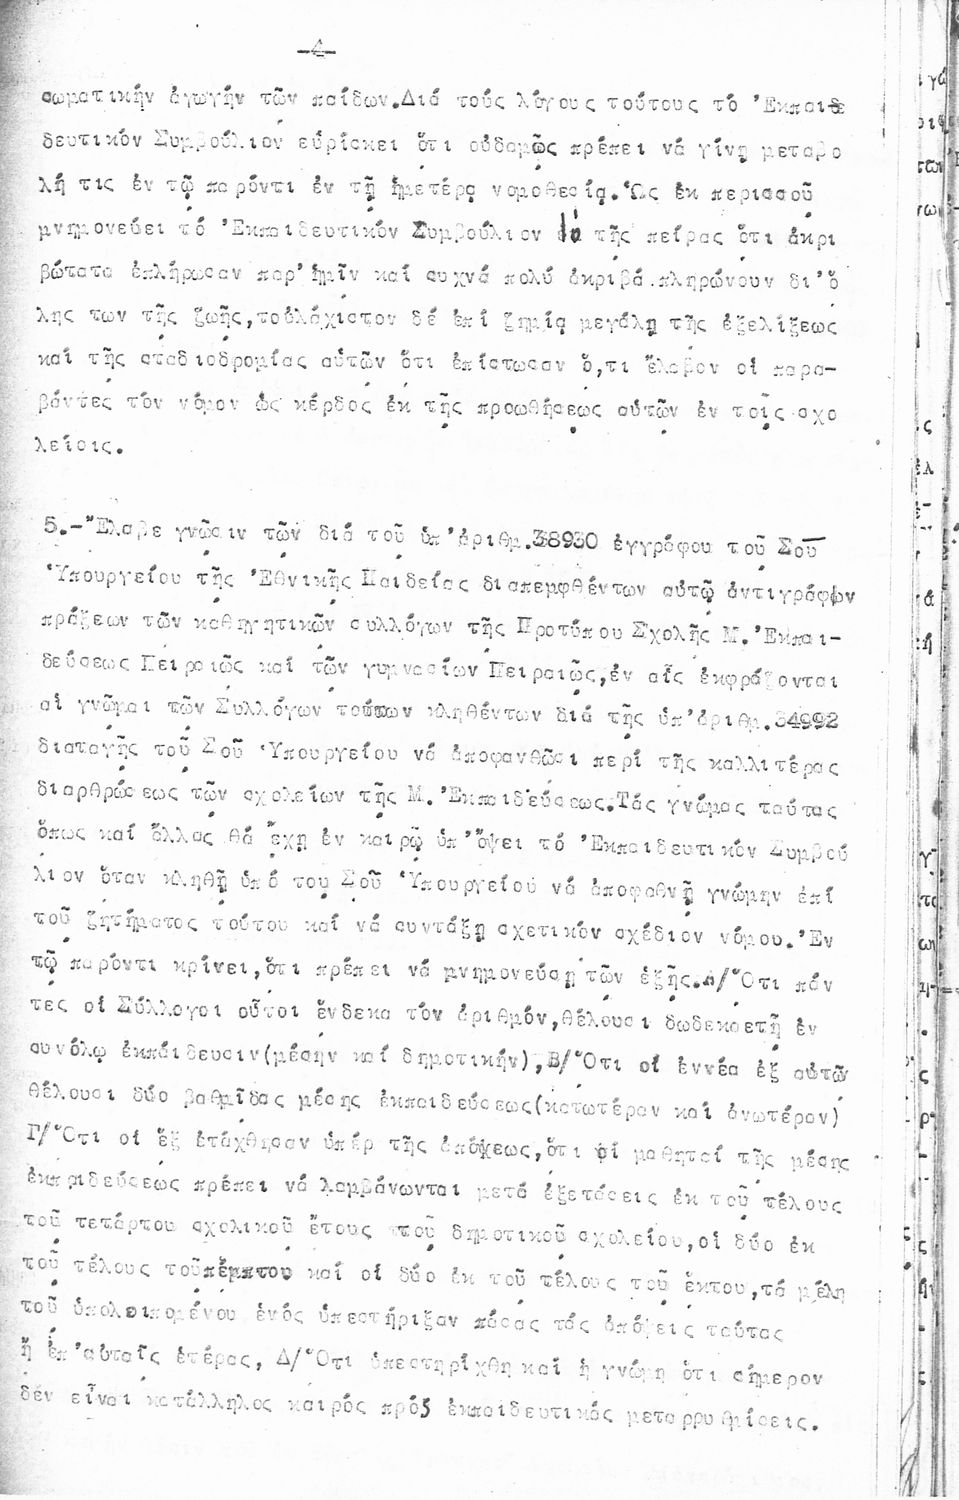 -4-
σωματικήν ἀγωγήν τῶν παίδων.Διά τούς λόγους τούτους τό Ἐκπαιδε
δευτικόν Συμβούλιον εὑρίσκει ὅτι οὐδαμῶς πρέπει νά γίνῃ μεταβο
λή τις ἐν τῷ παρόντι ἐν τῇ ἡμετέρᾳ νομοθεσίᾳ.Ὡς ἐκ περισσοῦ
μνημονεύει τό Ἐκπαιδευτικόν Συμβούλιον ἐκ τῆς πείρας ὅτι ἀκρι
βώτατα ἐπλήρωσαν παρ' ἡμῖν καί συχνά πολύ ἀκριβά πληρώνουν δι'ὅ
λης των τῆς ζωῆς,τοὐλάχιστον δέ ἐπί ζημίᾳ μεγάλῃ τῆς ἐξελίξεως
καί τῆς σταδιοδρομίας αὐτῶν ὅτι ἐπίστωσαν ὅ,τι ἔλαβον οἱ παρα-
βάντες τόν νόμον ὡς κέρδος ἐκ τῆς προωθήσεως αὐτῶν ἐν τοῖς σχο
λείοις.
5.-Ἔλαβε γνῶσιν τῶν διά τοῦ ὑπ'ἀριθμ.38930 ἐγγράφου τοῦ Σοῦ
Ὑπουργείου τῆς Ἐθνικῆς Παιδείας διαπεμφθέντων αὐτῷ ἀντιγράφων
πράξεων τῶν καθηγητικῶν συλλόγων τῆς Προτύπου Σχολῆς Μ.Ἐκπαι-
δεύσεως Πειραιῶς καί τῶν γυμνασίων Πειραιῶς,ἐν αἷς ἐκφράζονται
αἱ γνῶμαι τῶν Συλλόγων τούτων κληθέντων διά τῆς ὑπ'ἀριθμ.34992
διαταγῆς τοῦ Σοῦ Ὑπουργείου νά ἀποφανθῶσι περί τῆς καλλιτέρας
διαρθρώσεως τῶν σχολείων τῆς Μ.Ἐκπαιδεύσεως.Τάς γνώμας ταύτας
ὅπως καί ἄλλας θά ἔχῃ ἐν καιρῷ ὑπ'ὄψει τό Ἐκπαιδευτικόν Συμβού
λιον ὅταν κληθῇ ὑπό του Σοῦ Ὑπουργείου νά ἀποφαθνῇ γνώμην ἐπί
τοῦ ζητήματος τούτου καί νά συντάξῃ σχετικόν σχέδιον νόμου.Ἐν
τῷ παρόντι κρίνει,ὅτι πρέπει νά μνημονεύσῃ τῶν ἑξῆς.Α/Ὅτι πάν
τες οἱ Σύλλογοι οὗτοι ἕνδεκα τόν ἀριθμόν,θέλουσι δωδεκαετῆ ἐν
συνόλῳ ἐκπαίδευσιν(μέσην καί δημοτικήν),Β/Ὅτι οἱ ἐννέα ἐξ αὐτῶν
θέλουσι δύο βαθμῖδας μέσης ἐκπαιδεύσεως(κατωτέραν καί ἀνωτέραν)
Γ/Ὅτι οἱ ἕξ ἐτάχθησαν ὑπέρ τῆς ἀπόψεως,ὅτι οἱ μαθηταί τῆς μέσης
ἐκπαιδεύσεως πρέπει νά λαμβάνωνται μετά ἐξετάσεις ἐκ τοῦ τέλους
τοῦ τετάρτου σχολικοῦ ἔτους τοῦ δημοτικοῦ σχολείου,οἱ δύο ἐκ
τοῦ τέλους τοῦ πέμπτου καί οἱ δύο ἐκ τοῦ τέλους τοῦ ἕκτου,τά μέλη
τοῦ ὑπολειπομένου ἑνός ὑπεστήριξαν πάσας τάς ἀπόψεις ταύτας
ἤ ἐπ'αὐταῖς ἑτέρας, Δ/Ὅτι ὑπεστηρίχθη καί ἡ γνώμη ὅτι σήμερον
δέν εἶναι κατάλληλος καιρός πρός ἐκπαιδευτικάς μεταρρυθμίσεις.